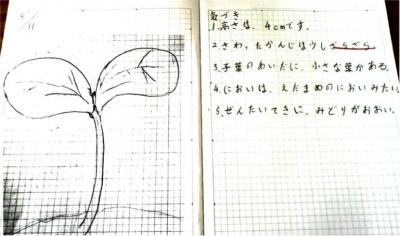 5/11
気づき
1.高さは、4cmです。
2.さわったかんじは少しざらざら
3.子葉のあいだに、小さな葉がある。
4.においは、えだまめのにおいみたい。
5.ぜんたいてきに、みどりがおおい。